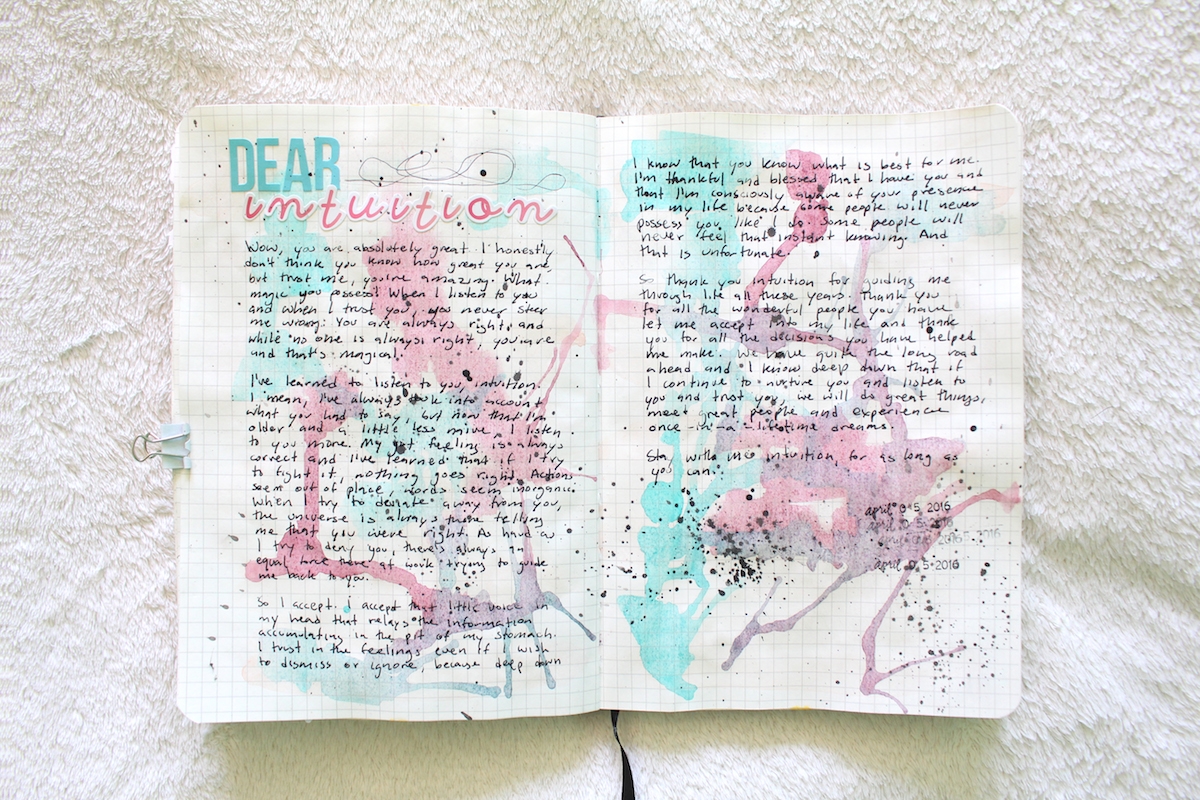 DEAR
intuition
Wow, you are absolutely great. I honestly
don't think you know how great you are,
but trust me, you're amazing. What
magic you possess! When I listen to you
and when I trust you, you never steer
me wrong. You are always right, and
while no one is always right, you are
and that's magical.
I've learned to listen to you, intuition.
I mean, I've always took into account
what you had to say, but now that I'm
older and a little less naive, I listen
to you more. My gut feeling is always
correct and I've learned that if I try
to fight it, nothing goes right. Actions
seem out of place, words seem inorganic.
When I try to deviate away from you,
the universe is always there telling
me that you were right. As hard as
I try to deny you, there's always an
equal force there at work trying to guide
me back to you.
So I accept. I accept that little voice in
my head that relays the information
accumulating in the pit of my stomach.
I trust in the feelings even if I wish
to dismiss or ignore, because deep down
I know that you know what is best for me.
I'm thankful and blessed that I have you and
that I'm consciously aware of your presence
in my life because some people will never
possess you like I do. Some people will
never feel that instant knowing. And
that is unfortunate.
So thank you intuition for guiding me
through life all these years. Thank you
for all the wonderful people you have
let me accept into my life and thank
you for all the decisions you have helped
me make. We have quite the long road
ahead and I know deep down that if
I continue to nurture you and listen to
you and trust you, we will do great things,
meet great people and experience
once-in-a-lifetime dreams.
Stay with me intuition, for as long as
you can.
april 0 5, 2016
april 0 5, 2016
april 0 5 2016 2016
april 0 5 2016